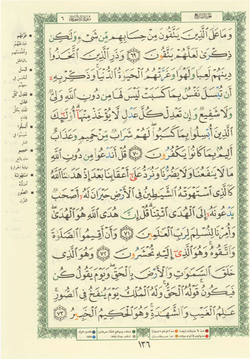 وَمَا عَلَى الَّذِينَ يَتَّقُونَ مِنْ حِسَابِهِم مِّن شَىْءٍ وَلَٰكِن
ذِكْرَىٰ لَعَلَّهُمْ يَتَّقُونَ ٦٩ وَذَرِ الَّذِينَ اتَّخَذُوا
دِينَهُمْ لَعِبًا وَلَهْوًا وَغَرَّتْهُمُ الْحَيَوٰةُ الدُّنْيَا وَذَكِّرْ بِهِ
أَن تُبْسَلَ نَفْسٌ بِمَا كَسَبَتْ لَيْسَ لَهَا مِن دُونِ اللَّهِ وَلِىٌّ
وَلَا شَفِيعٌ وَإِن تَعْدِلْ كُلَّ عَدْلٍ لَّا يُؤْخَذْ مِنْهَا أُولَٰئِكَ
الَّذِينَ أُبْسِلُوا بِمَا كَسَبُوا لَهُمْ شَرَابٌ مِّنْ حَمِيمٍ وَعَذَابٌ
أَلِيمٌ بِمَا كَانُوا يَكْفُرُونَ ٧٠ قُلْ أَنَدْعُوا مِن دُونِ اللَّهِ
مَا لَا يَنفَعُنَا وَلَا يَضُرُّنَا وَنُرَدُّ عَلَىٰ أَعْقَابِنَا بَعْدَ إِذْ هَدَىٰنَا اللَّهُ
كَالَّذِى اسْتَهْوَتْهُ الشَّيَٰطِينُ فِى الْأَرْضِ حَيْرَانَ لَهُ أَصْحَٰبٌ
يَدْعُونَهُ إِلَى الْهُدَى ائْتِنَا قُلْ إِنَّ هُدَى اللَّهِ هُوَ الْهُدَىٰ
وَأُمِرْنَا لِنُسْلِمَ لِرَبِّ الْعَٰلَمِينَ ٧١ وَأَنْ أَقِيمُوا الصَّلَوٰةَ
وَاتَّقُوهُ وَهُوَ الَّذِى إِلَيْهِ تُحْشَرُونَ ٧٢ وَهُوَ الَّذِى
خَلَقَ السَّمَٰوَٰتِ وَالْأَرْضَ بِالْحَقِّ وَيَوْمَ يَقُولُ كُن
فَيَكُونُ قَوْلُهُ الْحَقُّ وَلَهُ الْمُلْكُ يَوْمَ يُنفَخُ فِى الصُّورِ
عَٰلِمُ الْغَيْبِ وَالشَّهَٰدَةِ وَهُوَ الْحَكِيمُ الْخَبِيرُ ٧٣
١٣٦